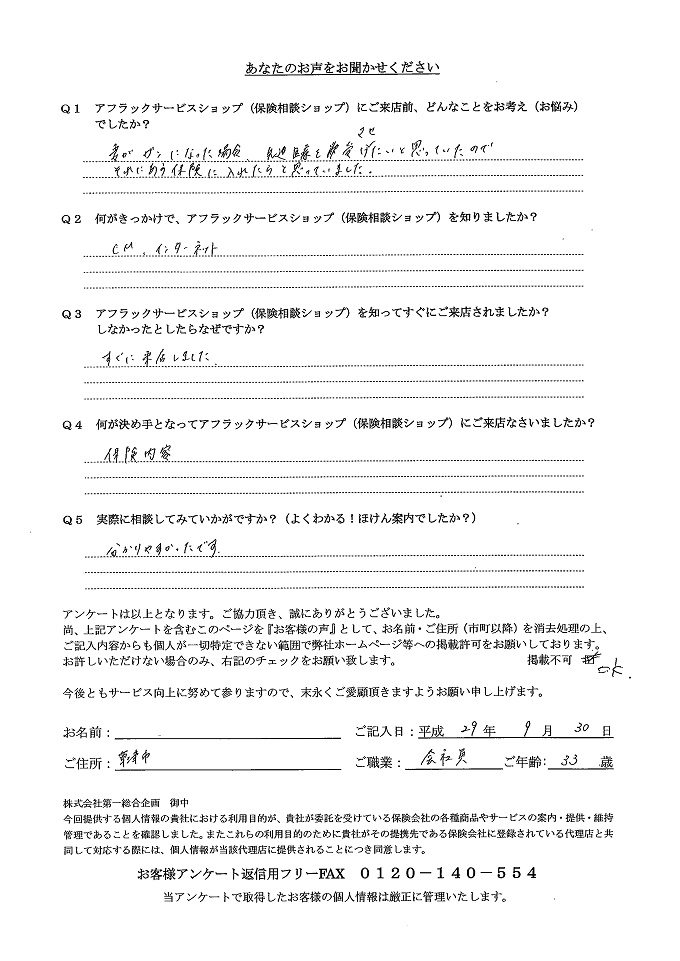 あなたのお声をお聞かせください
Q1 アフラックサービスショップ（保険相談ショップ）にご来店前、どんなことをお考え（お悩み）
でしたか？
させ
妻がガンになった場合、先進医療を受けたいと思っていたので
それに合う保険に入れたらと思っていました。
Q2 何がきっかけで、アフラックサービスショップ（保険相談ショップ）を知りましたか？
CM、インターネット
Q3 アフラックサービスショップ（保険相談ショップ）を知ってすぐにご来店されましたか？
しなかったとしたらなぜですか？
すぐに来店しました。
Q4 何が決め手となってアフラックサービスショップ（保険相談ショップ）にご来店なさいましたか？
保険内容
Q5 実際に相談してみていかがですか？（よくわかる！ほけん案内でしたか？）
分かりやすかったです。
アンケートは以上となります。ご協力頂き、誠にありがとうございました。
尚、上記アンケートを含むこのページを『お客様の声』として、お名前・ご住所（市町以降）を消去処理の上、
ご記入内容からも個人が一切特定できない範囲で弊社ホームページ等への掲載許可をお願いしております。
お許しいただけない場合のみ、右記のチェックをお願い致します。 掲載不可 ok.
今後ともサービス向上に努めて参りますので、末永くご愛顧頂きますようお願い申し上げます。
お名前： ご記入日：平成 29 年 9 月 30 日
ご住所： 市 ご職業： 会社員 ご年齢： 33 歳
株式会社第一総合企画 御中
今回提供する個人情報の貴社における利用目的が、貴社が委託を受けている保険会社の各種商品やサービスの案内・提供・維持
管理であることを確認しました。またこれらの利用目的のために貴社がその提携先である保険会社に登録されている代理店と共
同して対応する際には、個人情報が当該代理店に提供されることにつき同意します。
お客様アンケート返信用フリーFAX 0120－140－554
当アンケートで取得したお客様の個人情報は厳正に管理いたします。